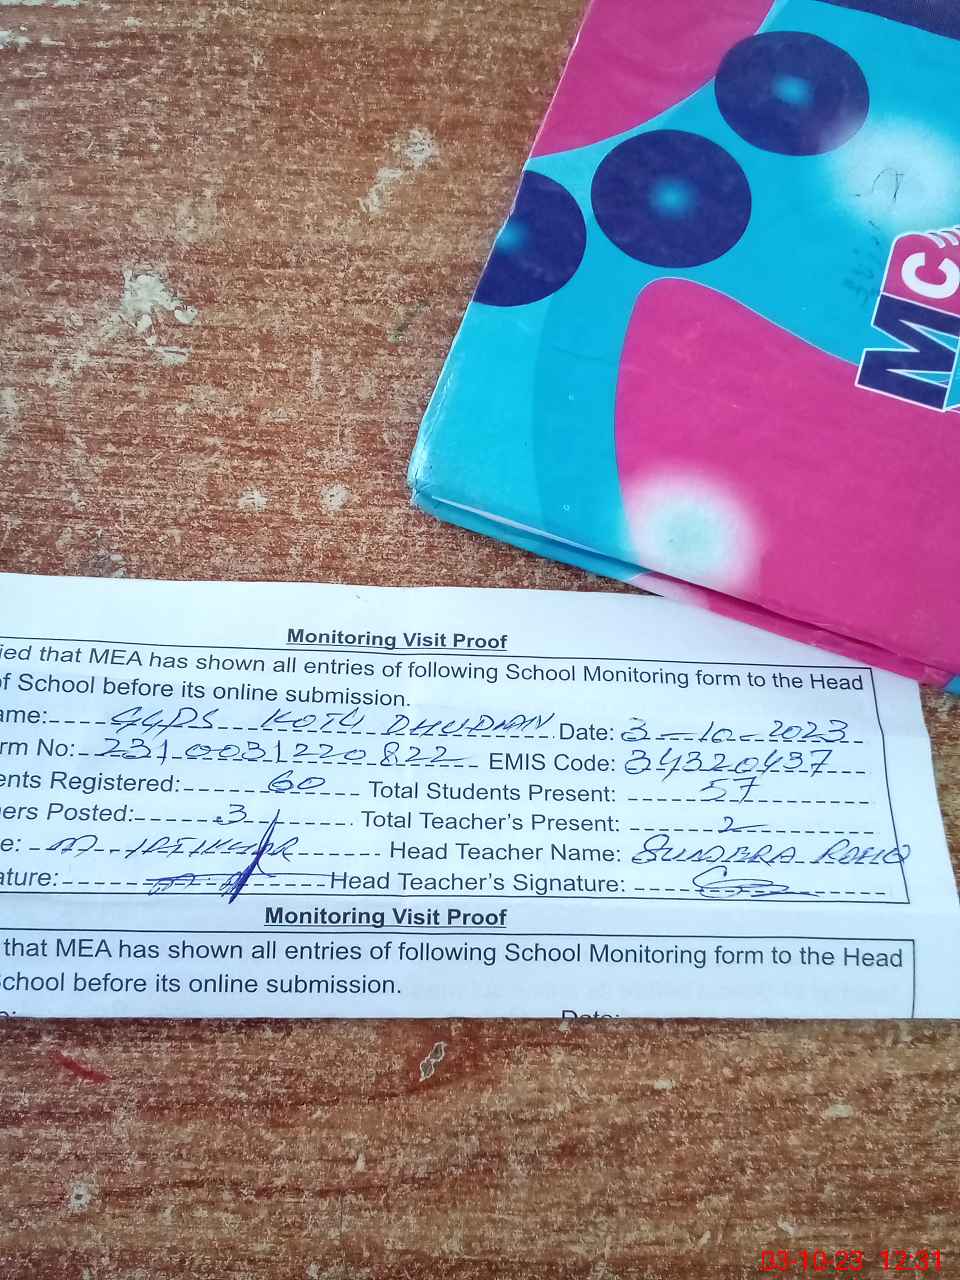 MC
Monitoring Visit Proof
ied that MEA has shown all entries of following School Monitoring form to the Head
of School before its online submission.
ame: GGPS KOTLI DHUDIAN Date: 3-10-2023
rm No: 2310031220822 EMIS Code: 34320437
ents Registered: 60 Total Students Present: 57
ers Posted: 3 Total Teacher's Present: 2
e: M. Head Teacher Name: SUNDERA RAFIQ
ature: Head Teacher's Signature:
Monitoring Visit Proof
that MEA has shown all entries of following School Monitoring form to the Head
School before its online submission.
Date:
03-10-23 12:31